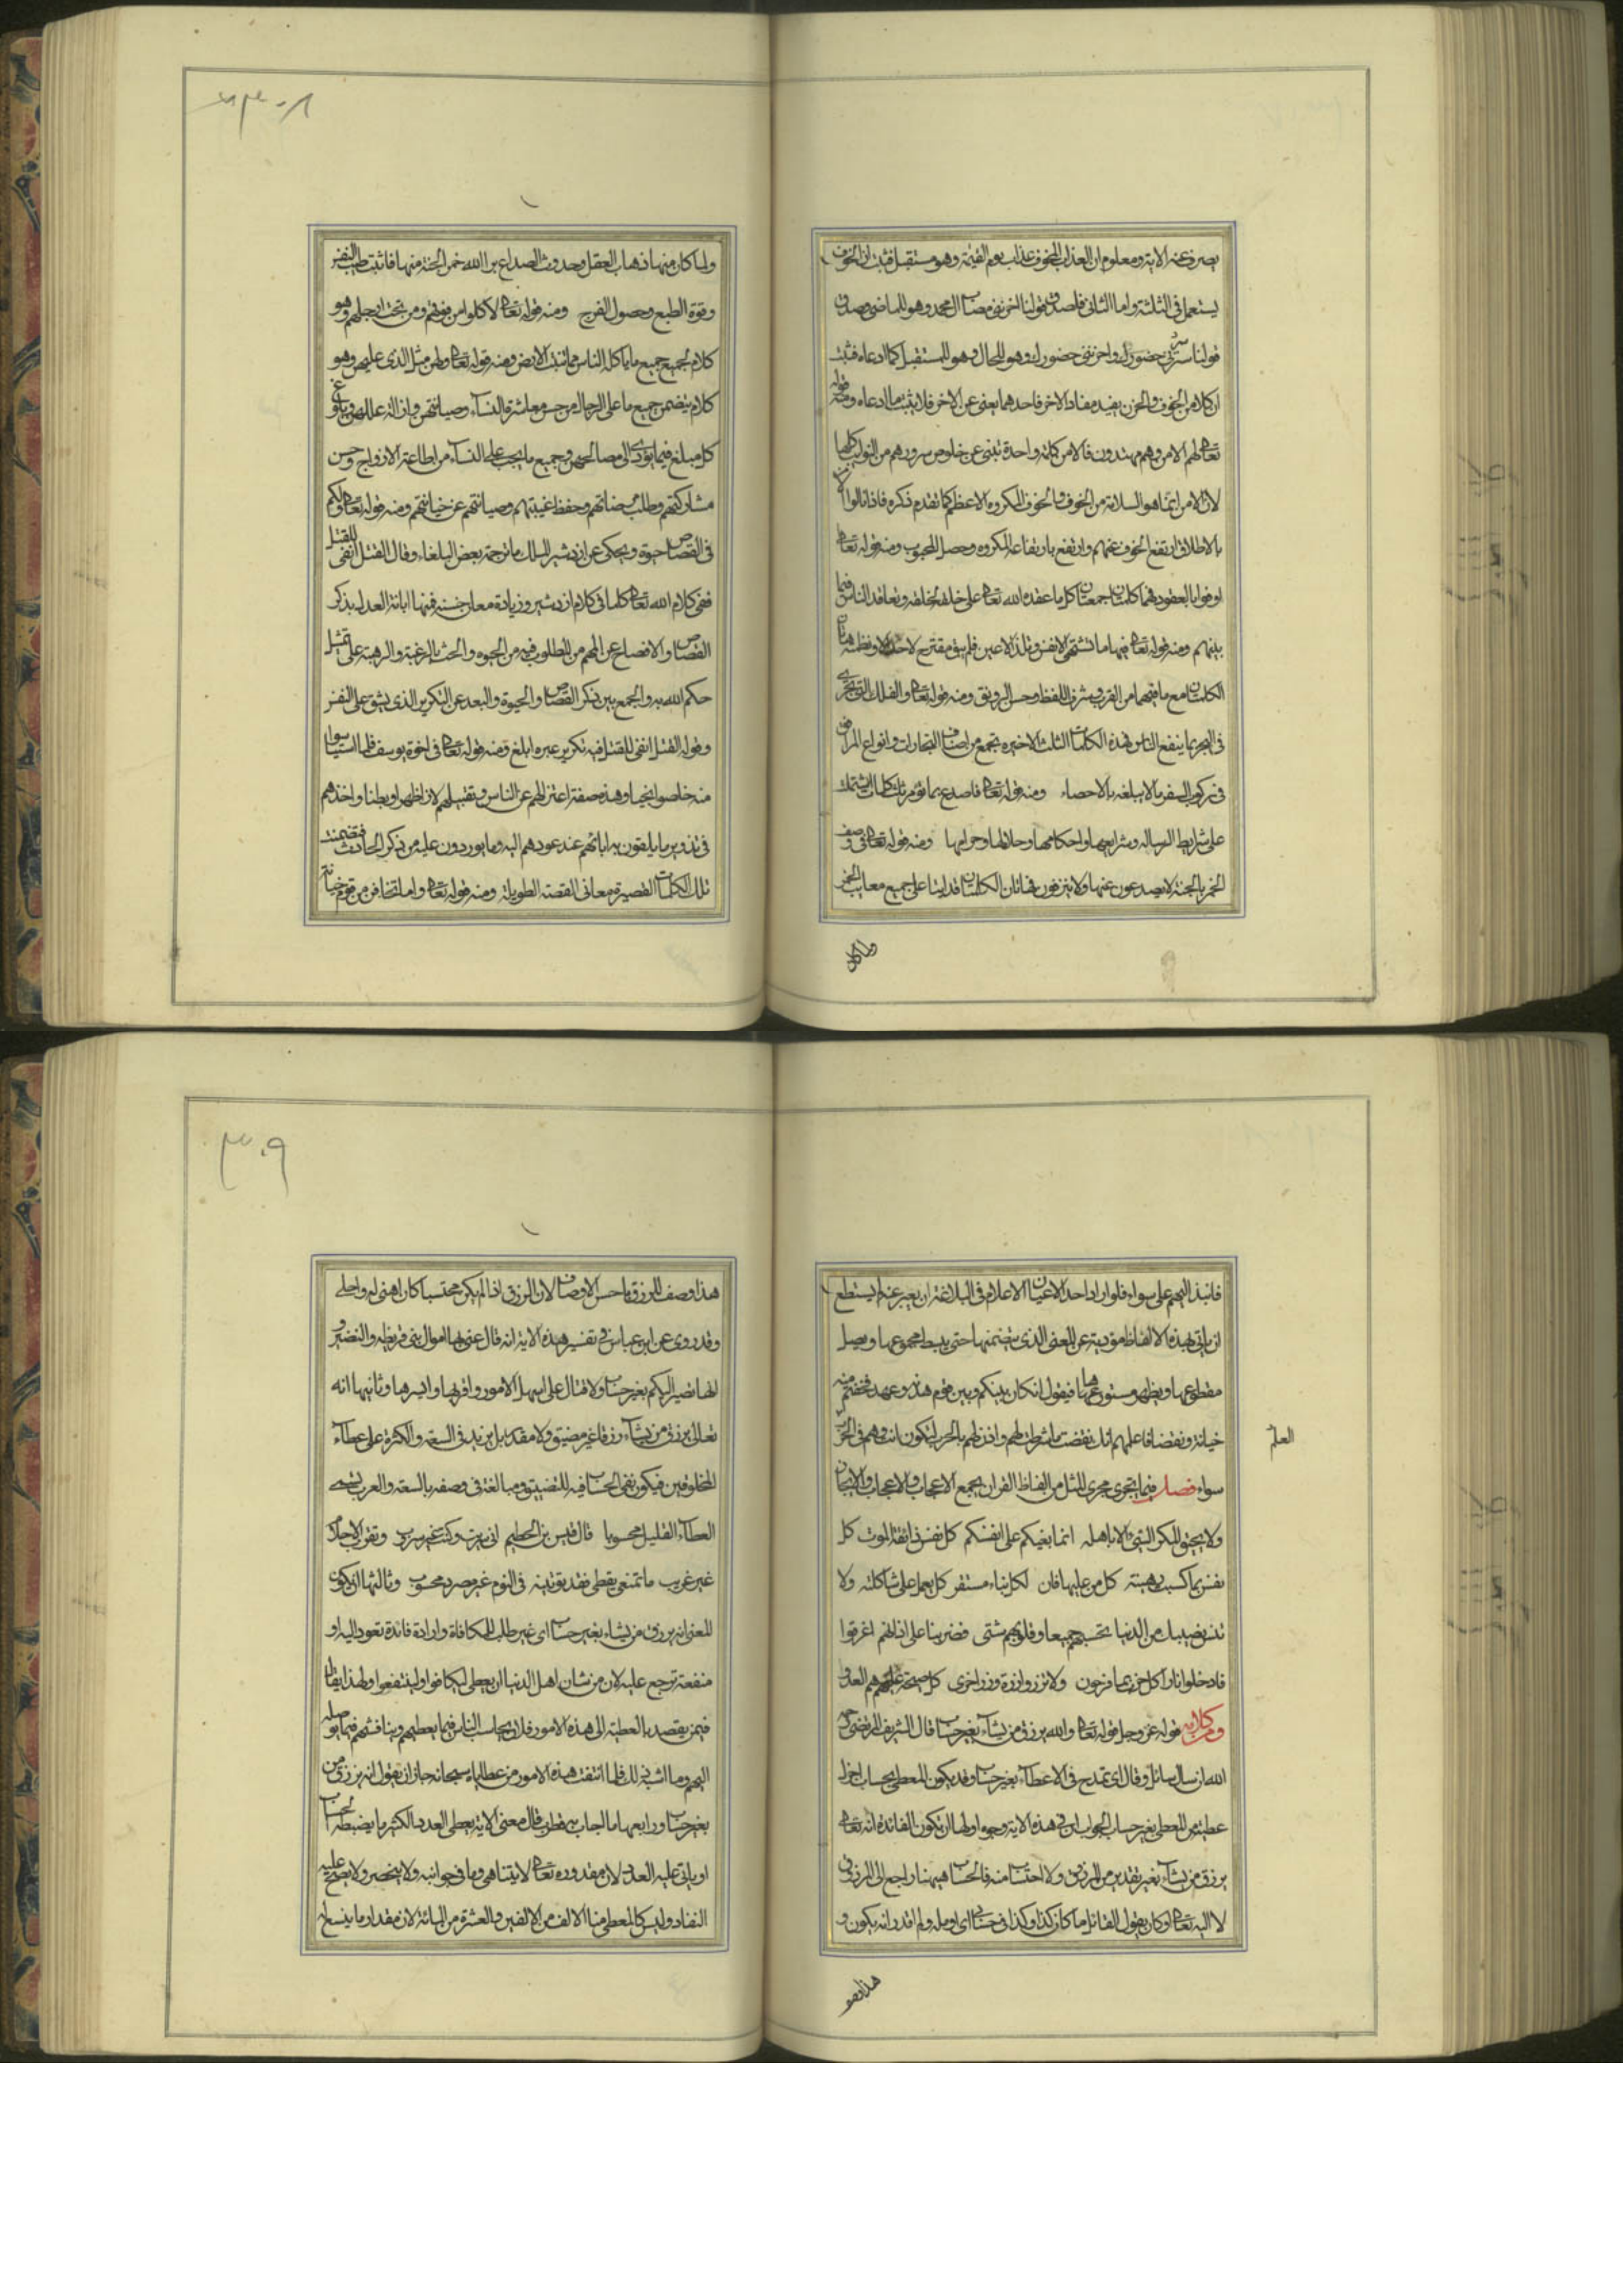 يصرف عنه الاية ومعلوم ان العذاب المخوف عذاب يوم القيمة وهو مستقبل فثبت ان الخوف
يستعمل في الثلثة واما الثاني فلصدق قولنا احزنني مصاب ال محمد وهو للماضي وصدق
قولنا سرني حضورك واحزنني حضورك وهو للحال وهو للمستقبل كما ادعاه فثبت
ان كلا من الخوف والحزن يفيد مفاد الاخر فاحدهما يعني عن الاخر فلا يثبت ما ادعاه ومنه قوله
تعالى لهم الامن وهم مهتدون فالامن كلمة واحدة تنبئ عن خلوص سرورهم من الشوايب كلها
لان الامن انما هو السلامة من الخوف والخوف المكروه الاعظم كما تقدم ذكره فاذا نالوا الامن
بالاطلاق ارتفع الخوف عنهم وارتفع بارتفاعه المكروه وحصل المحبوب ومنه قوله تعالى
اوفوا بالعقود فهما كلمتان جمعتا كل ما عقده الله تعالى على خلقه لخلقه وتعاقد الناس فيما
بينهم ومنه قوله تعالى فيها ما تشتهي الانفس وتلذ الاعين فلم يبق مقترح لاحد الا وتضمنته هاتان
الكلمتان مع ما فيهما من القرب وشرف اللفظ وحسن الرونق ومنه قوله تعالى والفلك التي تجري
في البحر بما ينفع الناس فهذه الكلمات الثلث الاخيرة تجمع من اصناف التجارات وانواع المرافق
في ركوب السفر ما لا يبلغه بالاحصاء ومنه قوله تعالى فاصدع بما تؤمر ثلث كلمات اشتملت
على شرايط الرسالة وشرايعها واحكامها وحلالها وحرامها ومنه قوله تعالى في وصف
الخمر بالجنة لا يصدعون عنها ولا ينزفون فهاتان الكلمتان قد اتيتا على جميع معايب الخمر
ولما كان
ولما كان منها ذهاب العقل وحدوث الصداع برا الله خمر الجنة منها فاثبت طيب النفس
وقوة الطبع وحصول الفرح ومنه قوله تعالى لاكلوا من فوقهم ومن تحت ارجلهم وهو
كلام لجميع جميع ما ياكله الناس مما تنبت الارض ومنه قوله تعالى ولهن مثل الذي عليهن وهو
كلام يتضمن جميع ما على الرجال من حسن معاشرة النسآء وصيانتهن وازالة عللهن وبلوغ
كل مبلغ فيما يؤدي الى مصالحهن وجميع ما يجب على النسآء من اطاعة الازواج وحسن
مشاركتهم وطلب مرضاتهم وحفظ غيبتهم وصيانتهم عن خيانتهم ومنه قوله تعالى ولكم
في القصاص حيوة ويحكى عن اردشير الملك ما ترجمه بعض البلغاء وقال القتل انفى للقتل
ففي كلام الله تعالى كلما في كلام اردشير وزيادة معان حسنة فمنها ابانة العدل بذكر
القصاص والافصاح عن المهم من المطلوب فيه من الحيوة والحث بالرغبة والرهبة على تمثيل
حكم الله به والجمع بين ذكر القصاص والحيوة والبعد عن التكرير الذي يشق على النفس
وقوله القتل انفى للقتل فيه تكرير غيره ابلغ ومنه قوله تعالى في اخوة يوسف فلما استيأسوا
منه خلصوا نجيا وهذه صفة اعتزالهم عن الناس وتقبيلهم لان اظهر او بطنا واخذهم
في تدوير ما يلقون به اباهم عند عودهم اليه وما يوردون عليه من ذكر الحادث فتضمنت
تلك الكلمات القصيرة معاني القصة الطويلة ومنه قوله تعالى واما تخافن من قوم خيانة
فانبذ اليهم على سواء فلو اراد احد الاعيان الاعلام في البلاغة ان يعبر عنه لم يستطع
ان ياتي بهذه الالفاظ مؤدية عن المعنى الذي يتضمنها حتى يبسط مجموعها ويصل
مقطوعها ويظهر مستورها فيقول ان كان بينكم وبين قوم هدنة وعهد فخفتم منه
خيانة ونقضا فاعلمهم انك نقضت ما شرطت لهم واذن لهم بالحرب لتكون انت وهم في الحرب
سواء فصل فيما يجري مجرى المثل من الفاظ القران يجمع الاعجاب والاعجاب والايجاز
العلم
ولا يحيق المكر السيئ الا باهله انما بغيكم على انفسكم كل نفس ذائقة الموت كل
نفس بما كسبت رهينة كل من عليها فان لكل نباء مستقر كل يعمل على شاكلته ولا
تنس نصيبك من الدنيا تحسبهم جميعا وقلوبهم شتى فضربنا على اذانهم اغرقوا
فادخلوا نارا كل حزب بما فرحون ولا تزر وازرة وزر اخرى كل صيحة عليهم هم العدو
ومن كلامه قوله عز وجل قوله تعالى والله يرزق من يشآء بغير حساب قال الشريف المرتضى رحمه
الله ان سال سائل وقال اي تمدح في الاعطآء بغير حساب وقد يكون المعطي بحساب اجزل
عطية من المعطي بغير حساب الجواب ان في هذه الاية وجوه اولها ان تكون الفائدة انه تعالى
يرزق من يشآء بغير تقدير من المرزوق ولا احتساب منه فالحساب هيهنا راجع الى المرزوق
لا اليه تعالى كما يقول القائل ما كان كذا وكذا في حسابي اي لم اومله ولم اقدر انه يكون و
هذا وصف
هذا وصف للرزق باحسن الاوصاف لان الرزق اذا لم يكن محتسبا كان اهنى له واحلى
وقد روى عن ابن عباس في تفسير هذه الاية انه قال عنى بها اموال بني قريظه والنضير و
انها تصير اليكم بغير حساب ولا قتال على اسهل الامور واقربها وايسرها وثانيها انه
تعالى يرزق من يشآء رزقا غير مضيق ولا مقدر بل يزيد في السعة والكثرة على عطآء
المخلوقين فيكون نفي الحساب فيه للتضييق ومبالغة في وصفه بالسعة والعرب تسمي
العطآء القليل محسوبا قال قيس بن الخطيم انى سربت وكنت غير سروب وتقرب الاحلام
غير قريب ما تمنعي يقظى فقد تؤتينه في النوم غير مصرد محسوب وثالثها ان يكون
المعنى انه يرزق من يشاء بغير حساب اي غير طلب المكافاة وارادة فائدة تعود اليه او
منفعة ترجع عليه لان من شان اهل الدنيا ان يعطي ليكافوا ولينتفعوا ولهذا يقال
فيمن يقصد بالعطية الى هذه الامور فلان يحاسب الناس فيما يعطيهم ويناقشهم فيما يوصله
اليهم وما اشبه ذلك فلما انتفت هذه الامور من عطاياه سبحانه جاز ان يقول انه يرزق من
بغير حساب ورابعها ما اجاب به قطرب قال معنى الاية يعطي العدد الكثير ما يضبطه الحساب
او ياتي عليه العدد لان مقدوره تعالى لا يتناهى وما في خزانته ولا ينحصر ولا يصح عليه
النفاد وليس كالمعطي منا الالف من الالفين والعشرة من المائة لان مقدار ما يتسع له
٣٠٩